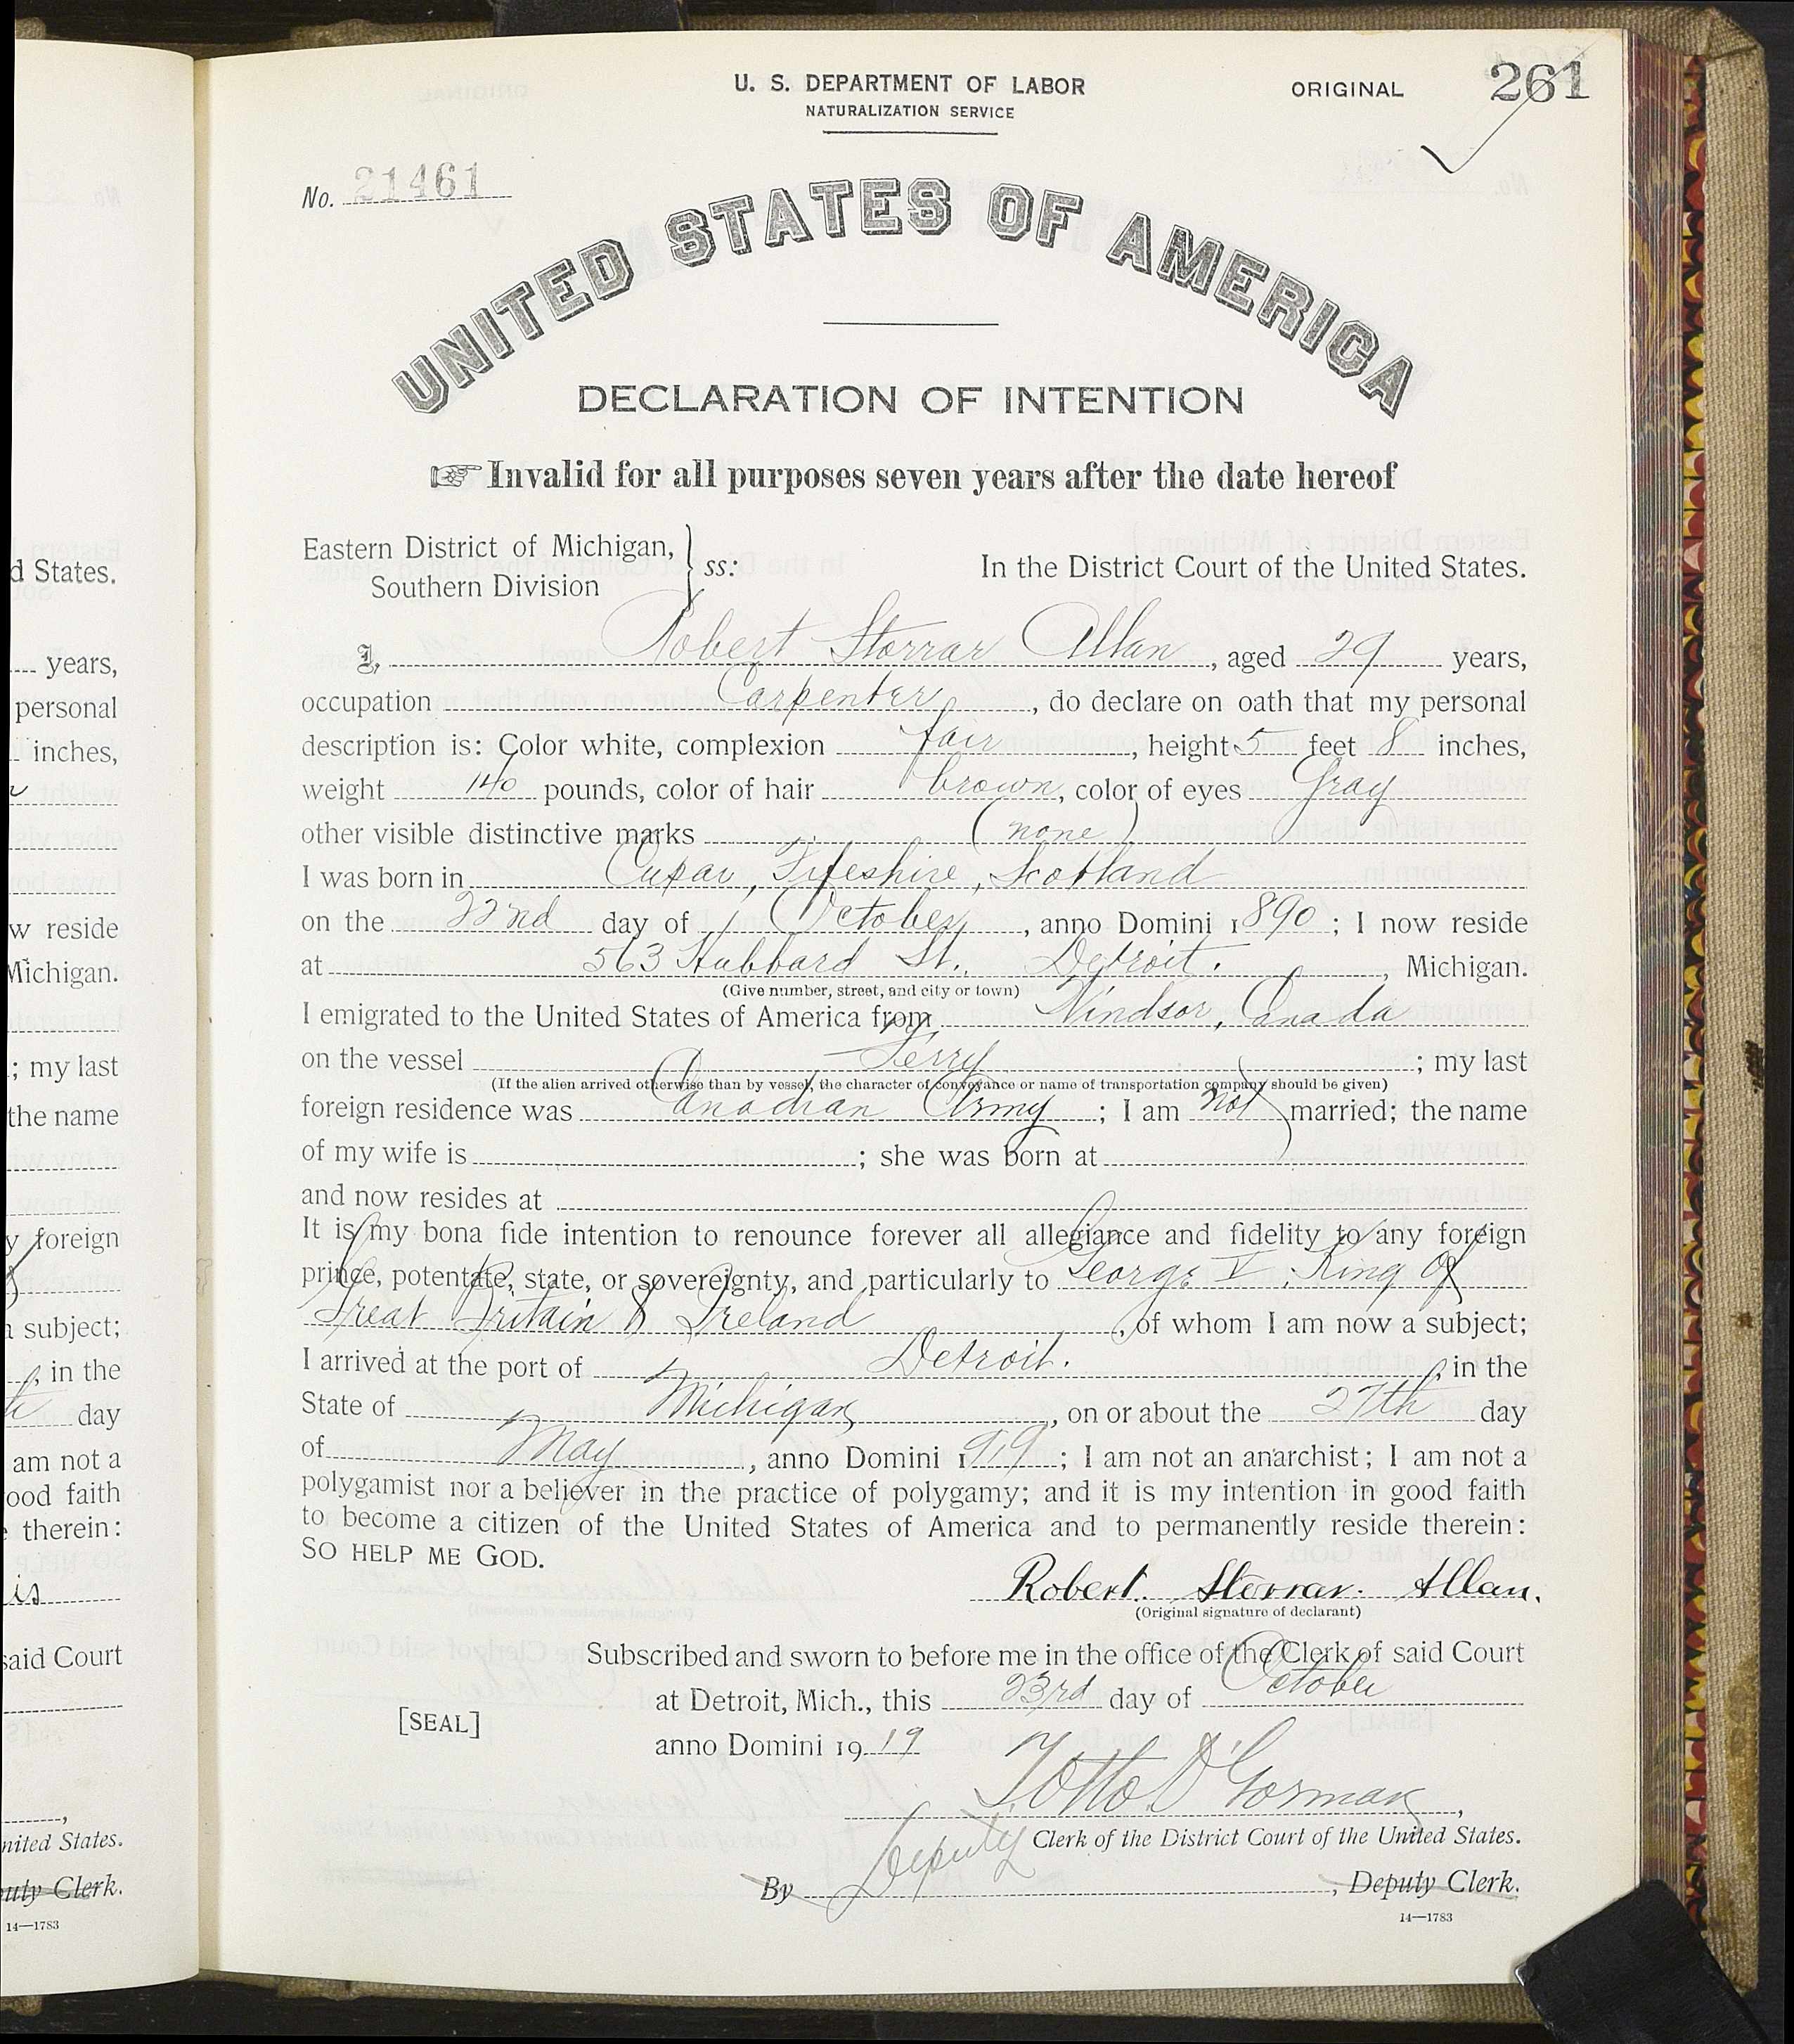 U. S. DEPARTMENT OF LABOR
NATURALIZATION SERVICE
ORIGINAL
261
No. 21461
UNITED STATES OF AMERICA
DECLARATION OF INTENTION
☞ Invalid for all purposes seven years after the date hereof
Eastern District of Michigan,
Southern Division
} ss:
In the District Court of the United States.
I, Robert Storrar Allan, aged 29 years,
occupation Carpenter, do declare on oath that my personal
description is: Color white, complexion fair, height 5 feet 8 inches,
weight 140 pounds, color of hair brown, color of eyes Gray
other visible distinctive marks (none)
I was born in Cupar, Fifeshire, Scotland
on the 22nd day of October, anno Domini 1890; I now reside
at 563 Hubbard St., Detroit., Michigan.
(Give number, street, and city or town)
I emigrated to the United States of America from Windsor, Canada
on the vessel Ferry; my last
(If the alien arrived otherwise than by vessel, the character of conveyance or name of transportation company should be given)
foreign residence was Canadian Army; I am not married; the name
of my wife is; she was born at
and now resides at
It is my bona fide intention to renounce forever all allegiance and fidelity to any foreign
prince, potentate, state, or sovereignty, and particularly to George V, King Of
Great Britain & Ireland, of whom I am now a subject;
I arrived at the port of Detroit., in the
State of Michigan, on or about the 27th day
of May, anno Domini 1919; I am not an anarchist; I am not a
polygamist nor a believer in the practice of polygamy; and it is my intention in good faith
to become a citizen of the United States of America and to permanently reside therein:
SO HELP ME GOD.
Robert. Storrar. Allan.
(Original signature of declarant)
Subscribed and sworn to before me in the office of the Clerk of said Court
at Detroit, Mich., this 23rd day of October
[SEAL]
anno Domini 1919
T. Otto O'Gorman,
Deputy Clerk of the District Court of the United States.
By, Deputy Clerk.
14—1783
d States.
years,
personal
inches,
w reside
Michigan.
; my last
the name
y foreign
a subject;
, in the
day
am not a
ood faith
e therein:
is
said Court
nited States.
uty Clerk.
14—1783